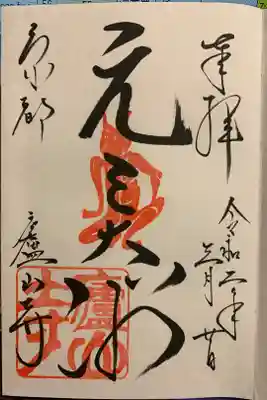 奉拝
令和二年
月廿日
元三大師
京都
廬山寺
廬山寺